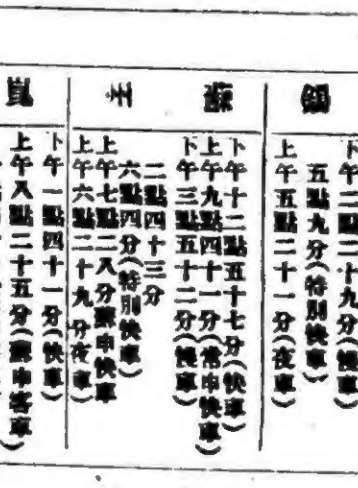 錫
下午二點二十九分(慢車)
五點九分(特別快車)
上午五點二十一分(夜車)
蘇
下午十二點五十七分(快車)
上午九點四十一分(常申快車)
下午三點五十二分(慢車)
二點四十三分
六點四分(特別快車)
上午七點二八分蘇申快車
上午六點二十九分夜車)
崑
下午一點四十一分(快車)
上午八點二十五分(蘇申客車)